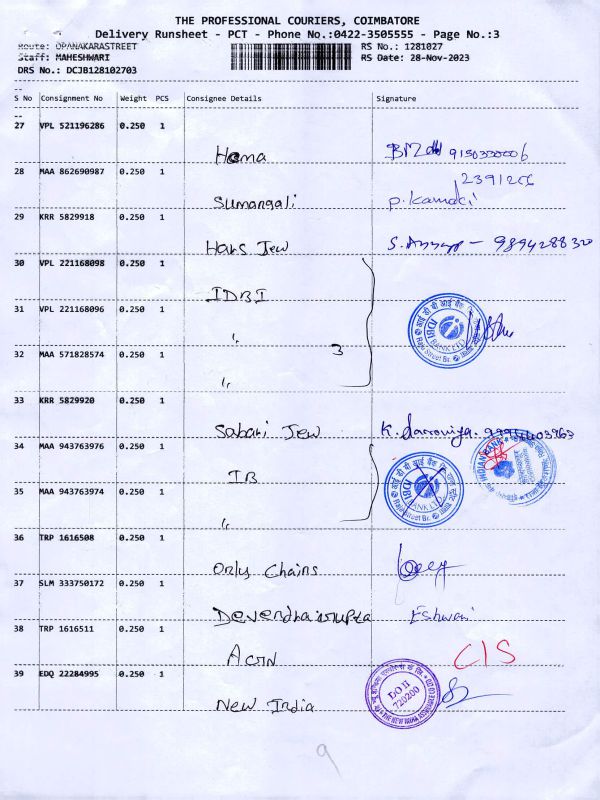 THE PROFESSIONAL COURIERS, COIMBATORE
Delivery Runsheet - PCT - Phone No.:0422-3505555 - Page No.:3
Route: OPANAKARASTREET RS No.: 1281027
Staff: MAHESHWARI RS Date: 28-Nov-2023
DRS No.: DCJB128102703
S No Consignment No Weight PCS Consignee Details Signature
27 VPL 521196286 0.250 1
Hema 9150330006
28 MAA 862690987 0.250 1
Sumangali
29 KRR 5829918 0.250 1
Hars Jew 9894288320
30 VPL 221168098 0.250 1
IDBI
31 VPL 221168096 0.250 1
"
IDBI BANK LTD.
32 MAA 571828574 0.250 1
3
"
33 KRR 5829920 0.250 1
Sabari Jew
34 MAA 943763976 0.250 1
IB
INDIAN BANK
IDBI BANK LTD.
35 MAA 943763974 0.250 1
"
36 TRP 1616508 0.250 1
Orly Chains
37 SLM 333750172 0.250 1
Eshwari
38 TRP 1616511 0.250 1
CIS
39 EDQ 22284995 0.250 1
DO II
720200
New India
9